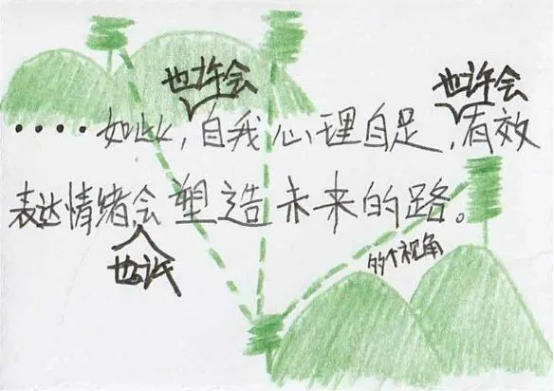 也许会 也许会
·····如此,自我心理自足,有效
表达情绪会塑造未来的路。
也许
的个视角